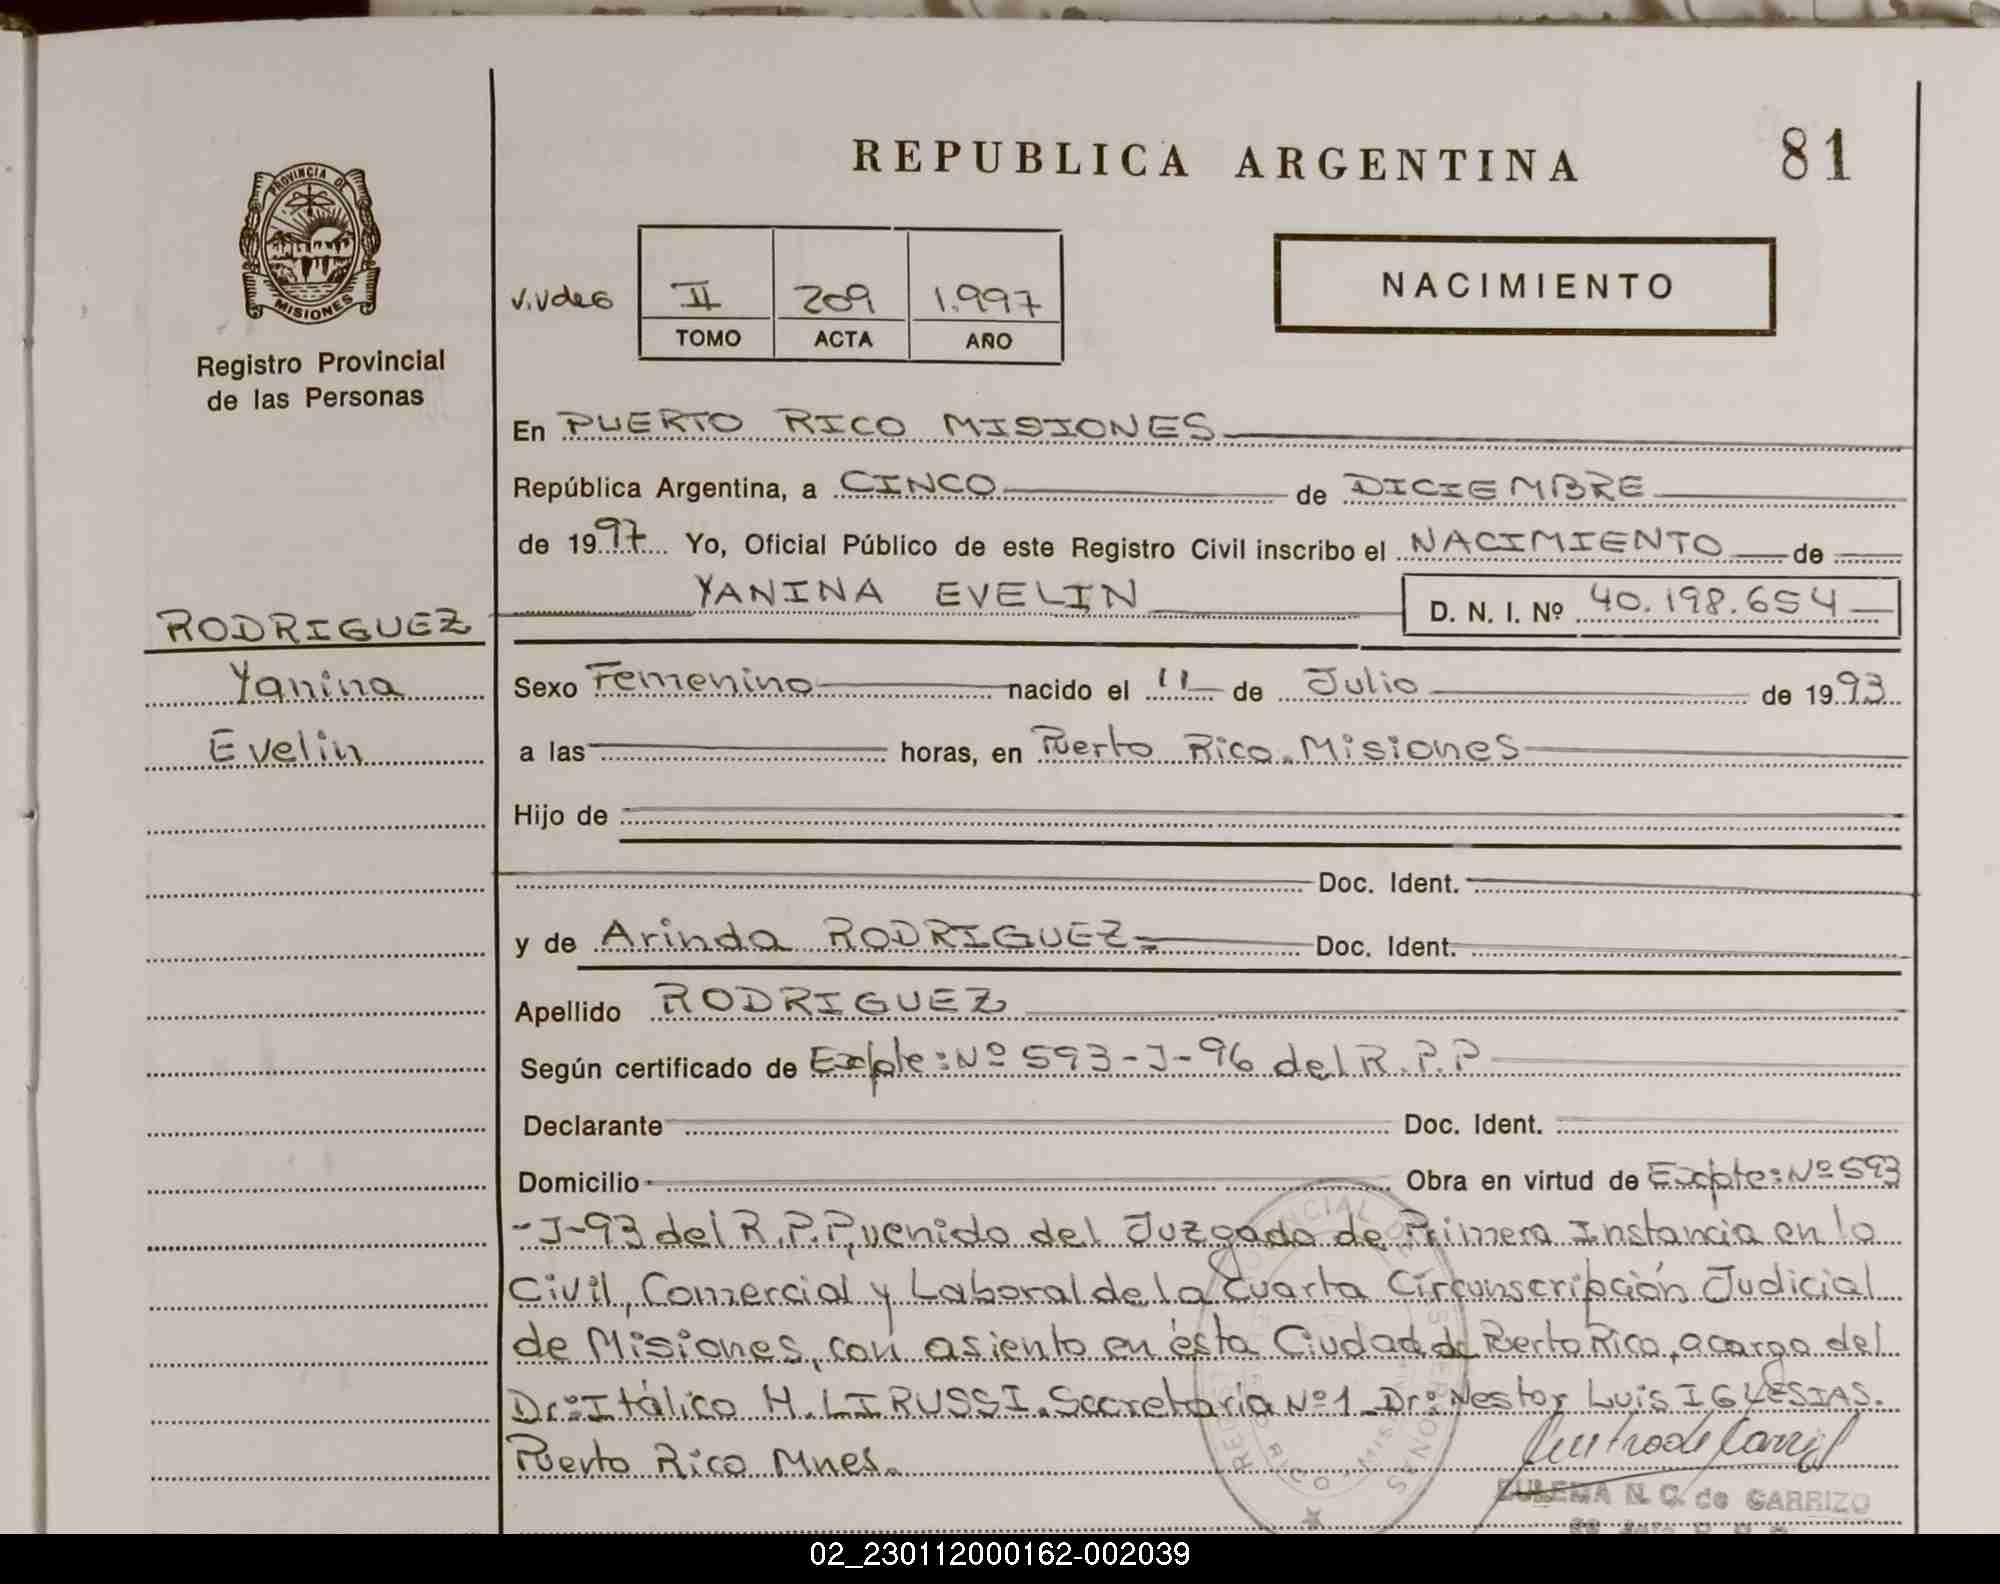 REPUBLICA ARGENTINA
81
PROVINCIA DE
MISIONES
Registro Provincial
de las Personas
II 209 1.997
TOMO ACTA AÑO
NACIMIENTO
En PUERTO RICO MISIONES
República Argentina, a CINCO de DICIEMBRE
de 1997 Yo, Oficial Público de este Registro Civil inscribo el NACIMIENTO de
YANINA EVELIN D. N. I. Nº 40.198.654
RODRIGUEZ
Yanina
Evelin
Sexo Femenino nacido el 11 de Julio de 1993
a las horas, en Puerto Rico. Misiones
Hijo de
Doc. Ident.
y de Arinda RODRIGUEZ Doc. Ident.
Apellido RODRIGUEZ
Según certificado de Expte: Nº 593-J-96 del R.P.P
Declarante Doc. Ident.
Domicilio Obra en virtud de Expte: Nº 593
-J-93 del R.P.P, venido del Juzgado de Primera Instancia en lo
Civil, Comercial y Laboral de la Cuarta Circunscripción Judicial
de Misiones, con asiento en ésta Ciudad de Puerto Rico, a cargo del
Dr: Itálico H. LIRUSSI. Secretaría Nº 1 Dr: Nestor Luis IGLESIAS.
Puerto Rico Mnes.
ZULEMA N. C. de CARRIZO
02_230112000162-002039